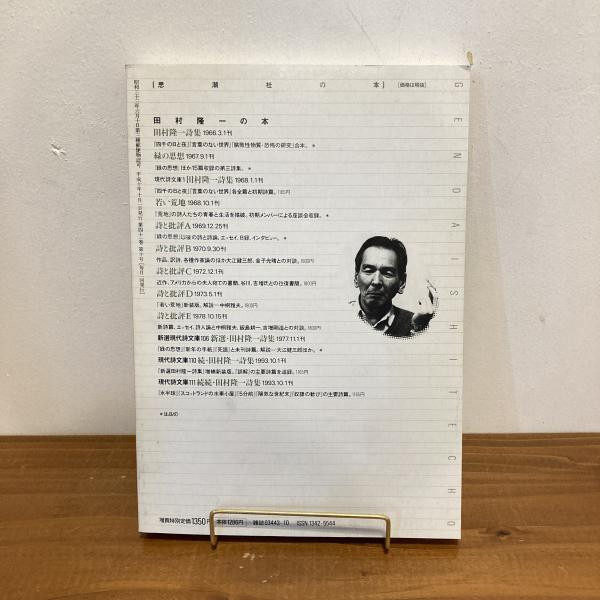 [思潮社の本]
[価格は税抜]
GENDAISHITECHO
田村隆一の本
田村隆一詩集 1966.3.1刊
『四千の日と夜』『言葉のない世界』『腐敗性物質・恐怖の研究』合本。＊
緑の思想 1967.9.1刊
『緑の思想』ほか15篇収録の第三詩集。＊
現代詩文庫1 田村隆一詩集 1968.1.1刊
『四千の日と夜』『言葉のない世界』各全篇と初期詩篇。1165円
若い荒地 1968.10.1刊
『荒地』の詩人たちの青春と生活を描破。初期メンバーによる座談会収録。＊
詩と批評A 1969.12.25刊
『緑の思想』以後の詩と詩論、エッセイ、日録、インタビュー。＊
詩と批評B 1970.9.30刊
作品、訳詩、各種作家論のほか大江健三郎、金子光晴との対談。
詩と批評C 1972.12.1刊
近作、アメリカからの夫人宛ての書簡、谷川、吉増氏との往復書簡。1800円
詩と批評D 1973.5.1刊
『若い荒地』新装版。解説―中桐雅夫。1800円
詩と批評E 1978.10.15刊
新詩篇、エッセイ、詩人論と中桐雅夫、飯島耕一、吉増剛造との対談。1800円
新選現代詩文庫106 新選・田村隆一詩集 1977.11.1刊
『緑の思想』『新年の手紙』『死語』と未刊詩篇。解説―大江健三郎ほか。＊
現代詩文庫110 続・田村隆一詩集 1993.10.1刊
『新選田村隆一詩集』増補新装版。『誤解』の主要詩篇を追録。1165円
現代詩文庫111 続続・田村隆一詩集 1993.10.1刊
『水半球』『スコットランドの水車小屋』『5分前』『陽気な世紀末』『奴隷の歓び』の主要詩篇。1165円
＊は品切
増頁特別定価1350円
本体1286円
雑誌03443-10
ISSN 1342-5544